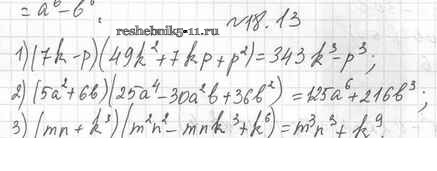 = a⁶ - б⁶.
reshebnik5-11.ru
№18.13
1) (7k - p)(49k² + 7kp + p²) = 343k³ - p³;
2) (5a² + 6b)(25a⁴ - 30a²b + 36b²) = 125a⁶ + 216b³;
3) (mn + k³)(m²n² - mnk³ + k⁶) = m³n³ + k⁹.